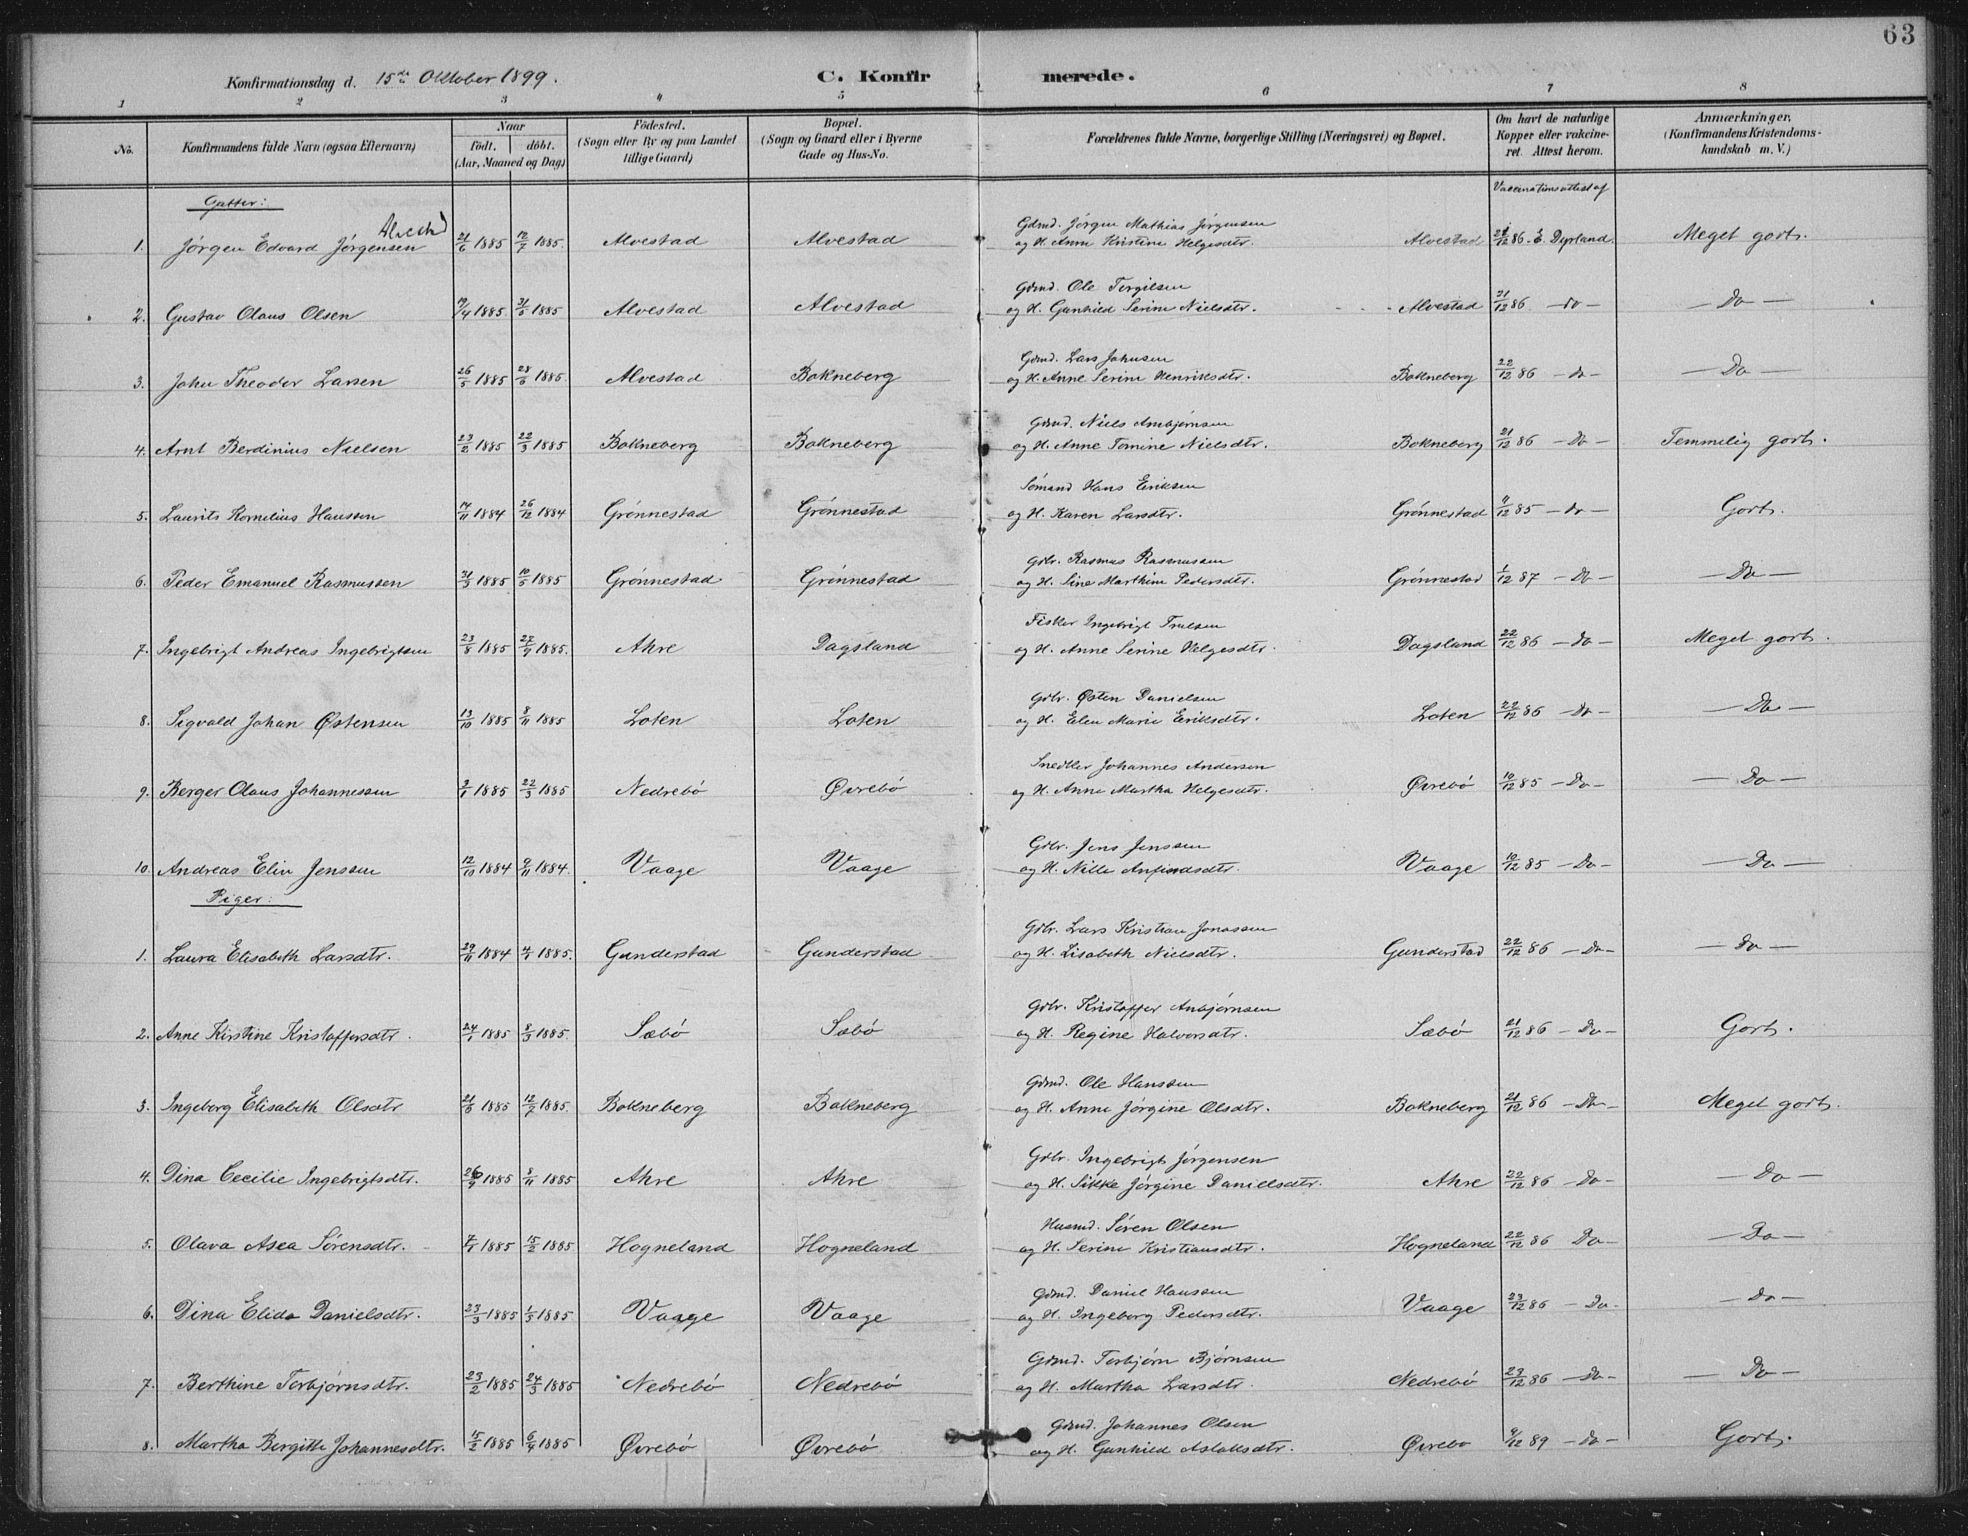 63
Konfirmationsdag d. 15de Oktober 1899.
C. Konfirmerede.
1 2 3 4 5 6 7 8
No. | Konfirmandens fulde Navn (ogsaa Efternavn) | Naar født. døbt. (Aar, Maaned og Dag) | Fødested. (Sogn eller By og paa Landet tillige Gaard) | Bopæl. (Sogn og Gaard eller i Byerne Gade og Hus-No. | Forældrenes fulde Navne, borgerlige Stilling (Næringsvei) og Bopæl. | Om havt de naturlige Kopper eller vakcineret. Attest herom. | Anmærkninger, (Konfirmandens Kristendomskundskab m. V.)
Vaccinationsattest af
Gutter:
Alvestad
Gdmd. Jørgen Mathias Jørgensen
1. Jørgen Edvard Jørgensen 21/6 1885 12/7 1885. Alvestad Alvestad og H. Anne Kristine Helgesdtr. Alvestad 21/12 86. E. Dyrland. Meget godt.
Gdmd. Ole Torgilsen
2. Gustav Olaus Olsen 19/4 1885 31/5 1885 Alvestad Alvestad og H. Gunhild Serine Nielsdtr. Alvestad 21/12 86 - do - - Do -
Gdmd. Lars Johnsen
3. John Theodor Larsen 26/5 1885 28/6 1885. Alvestad Bokneberg og H. Anne Serine Henriksdtr. Bokneberg 22/12 86 - do - - Do -
Gdmd. Niels Anbjørnsen
4. Arnt Berdinius Nielsen 23/2 1885 22/3 1885 Bokneberg Bokneberg og H. Anne Tomine Nielsdtr. Bokneberg 21/12 86 - Do - Temmelig godt.
Sømand Hans Eriksen
5. Laurits Kornelius Hanssen 14/11 1884 26/12 1884 Grønnestad Grønnestad og H. Karen Larsdtr. Grønnestad /12 85 - do - Godt.
Gdbr. Rasmus Rasmussen
6. Peder Emanuel Rasmussen 31/3 1885 10/5 1885 Grønnestad Grønnestad og H. Sine Marthine Pedersdtr. Grønnestad 1/12 87 - Do - - Do -
Fisker Ingebrigt Trulsen
7. Ingebrigt Andreas Ingebrigtsen 23/8 1885 27/9 1885. Ahre Dagsland og H. Anne Serine Helgesdtr. Dagsland 22/12 86 - do - Meget godt.
Gdbr. Østen Danielsen
8. Sigvald Johan Østensen 13/10 1885 8/11 1885 Loten Loten og H. Elen Marie Eriksdtr. Loten 22/12 86 - Do - - Do -
Snedker Johannes Andersen
9. Berger Olaus Johannessen 3/1 1885 22/3 1885 Nedrebø Øvrebø og H. Anne Martha Helgesdtr. Øvrebø 10/12 85 - Do - - Do -
Gdbr. Jens Jenssen
10. Andreas Elin Jenssen 12/10 1884 9/11 1884. Vaage Vaage og H. Nille Anfindsdtr. Vaage 10/12 85 - Do - - Do -
Piger:
Gdbr. Lars Kristian Jonassen
1. Laura Elisabeth Larsdtr. 29/11 1884 4/1 1885. Gunderstad Gunderstad og H. Lisabeth Nielsdtr. Gunderstad 22/12 86 - Do - - do -
Gdbr. Kristoffer Anbjørnsen
2. Anne Kirstine Kristoffersdtr. 24/1 1885 8/3 1885. Sæbø Sæbø og H. Regine Halvorsdtr. Sæbø 21/12 86 - Do - Godt.
Gdmd. Ole Hanssen
3. Ingeborg Elisabeth Olsdtr 21/5 1885 12/7 1885. Bokneberg Bokneberg og H. Anne Jørgine Olsdtr. Bokneberg 21/12 86 - Do - Meget godt.
Gdbr. Ingebrigt Jørgensen
4. Dina Cecilie Ingebrigtsdtr. 26/9 1885 8/11 1885 Ahre Ahre og H. Sikke Jørgine Danielsdtr. Ahre 22/12 86 - Do - - Do -
Husmd. Søren Olsen
5. Olava Asea Sørensdtr. 7/1 1885 15/2 1885 Hogneland Hogneland og H. Serine Kristiansdtr. Hogneland 22/12 86 Do - - Do -
Gdmd. Daniel Hanssen
6. Dina Elida Danielsdtr. 23/3 1885 1/5 1885 Vaage Vaage og H. Ingeborg Pedersdtr. Vaage 23/12 86 - Do - - Do -
Gdmd. Torbjørn Bjørnsen
7. Berthine Torbjørnsdtr. 23/2 1885 24/3 1885 Nedrebø Nedrebø og H. Martha Larsdtr. Nedrebø 23/12 86 - Do - - Do -
Gdmd. Johannes Olsen
8. Martha Bergitte Johannesdtr. 15/2 1885 6/4 1885 Øvrebø Øvrebø og H. Gunhild Aslaksdtr. Øvrebo 9/12 89 - Do - Godt.